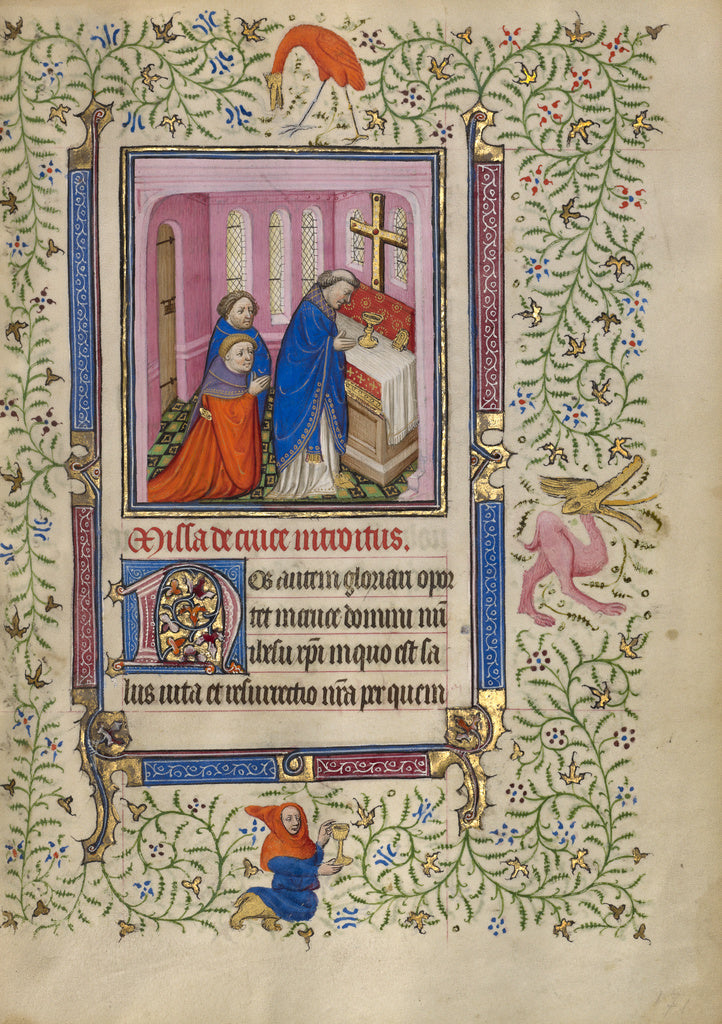 Missa de cruce introitus.
Nos autem gloriari opor
tet in cruce domini nri
ihesu xpi in quo est sa
lus uita et resurrectio nra per quem
171